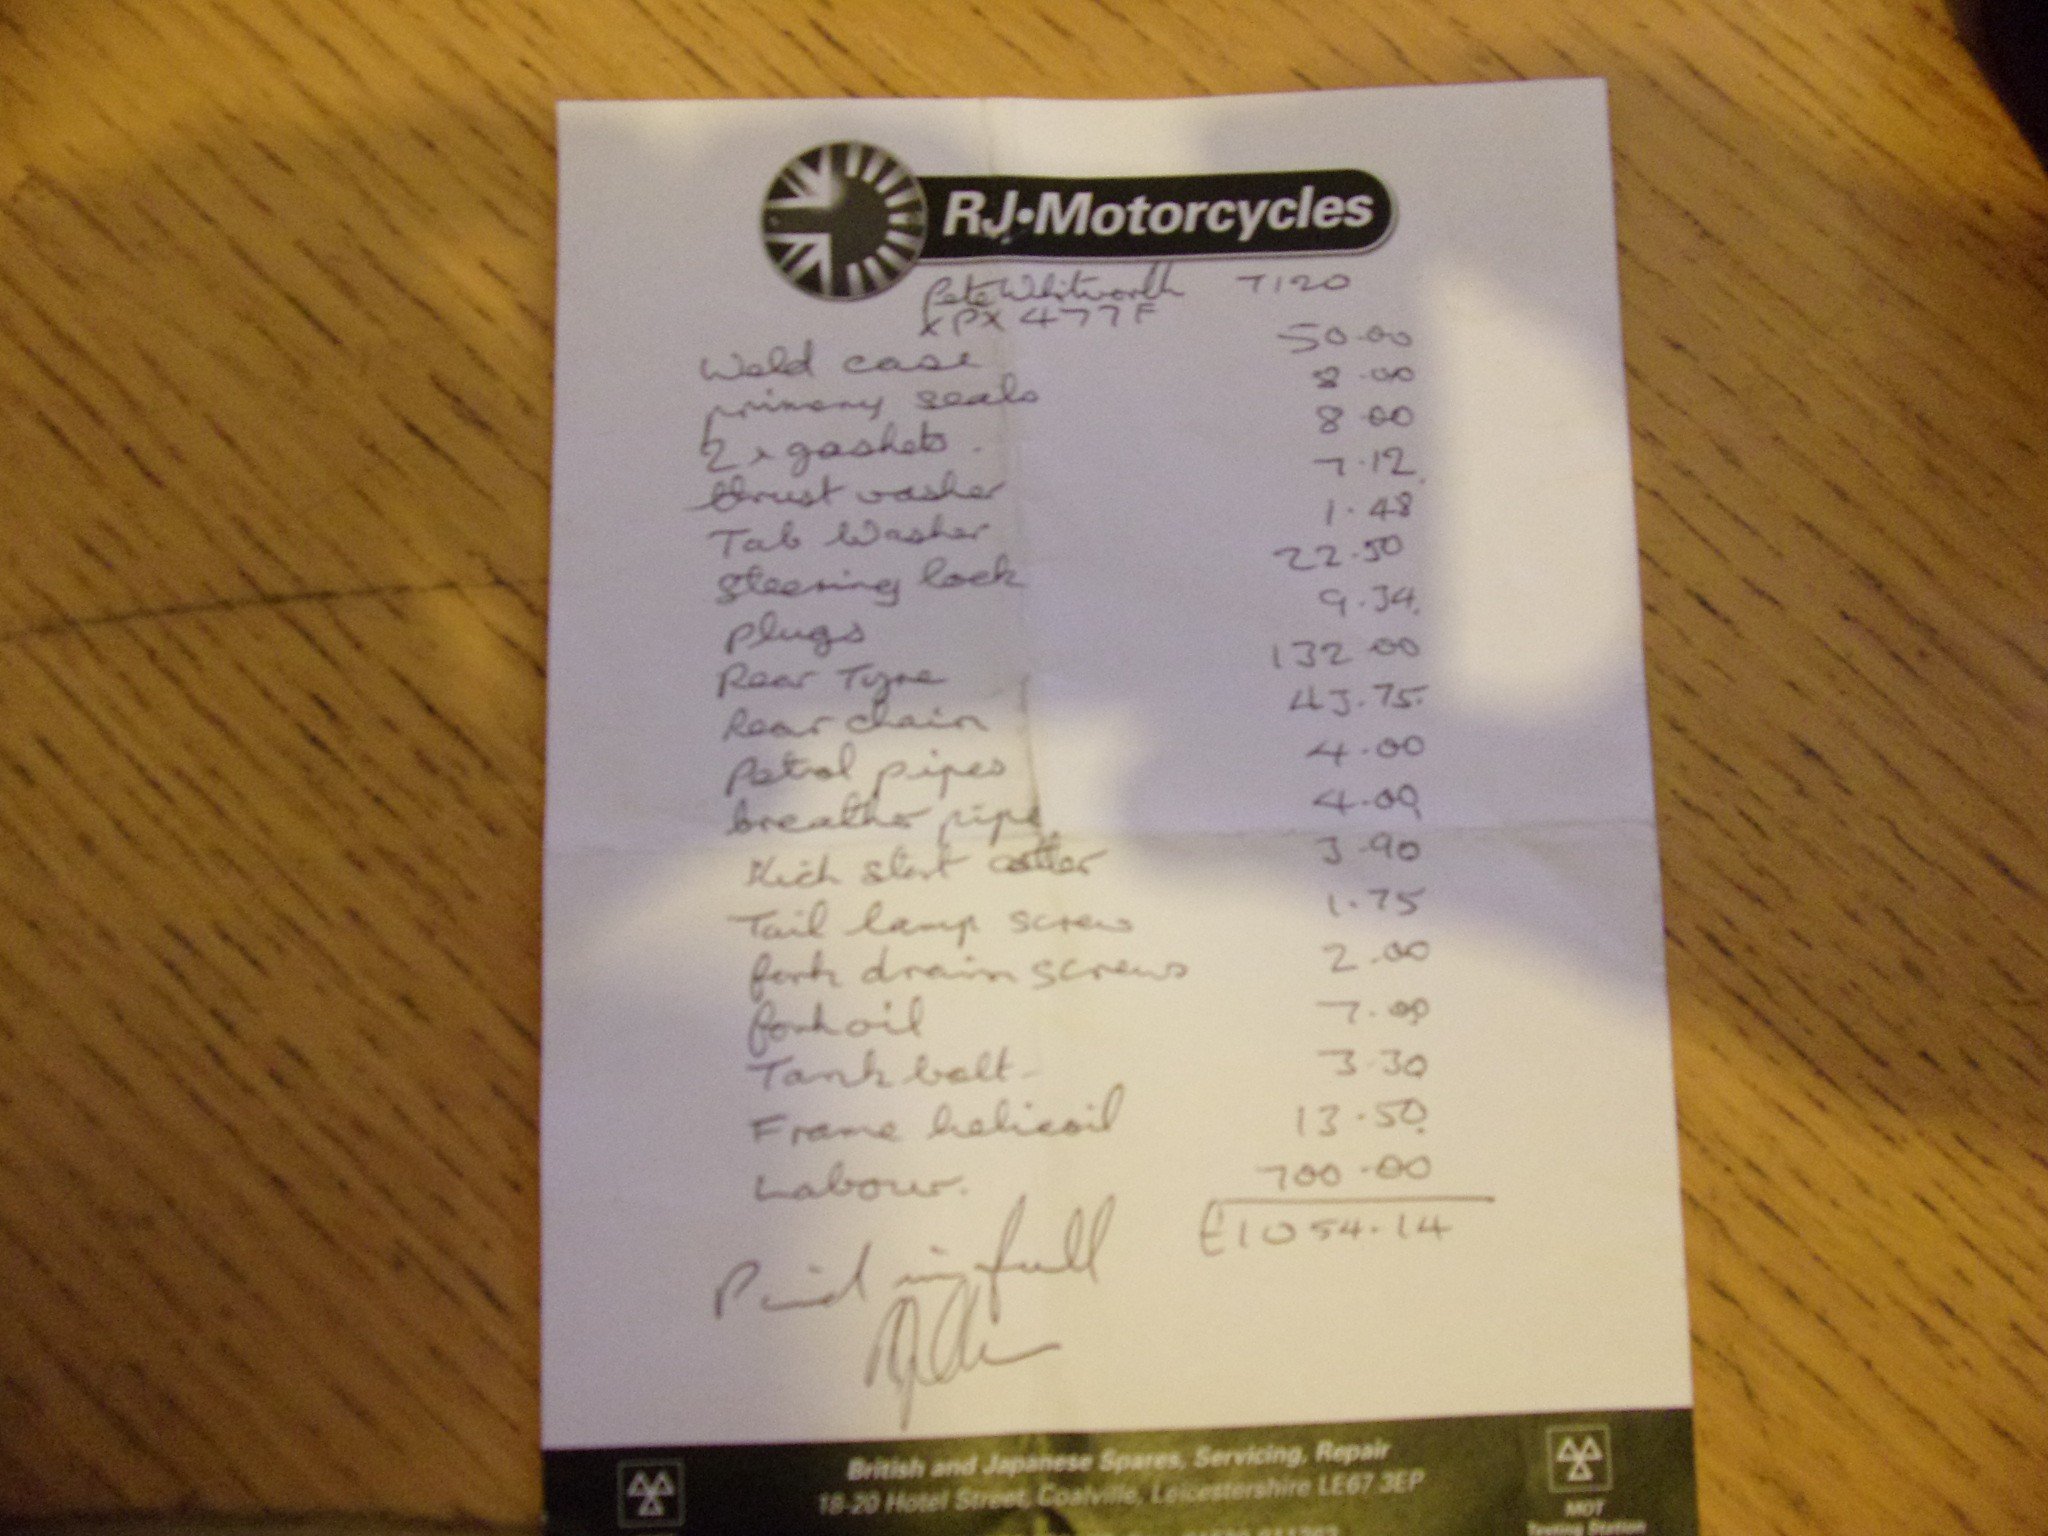 RJ•Motorcycles
Pete Whitworth T120
XPX 477F
Weld case 50.00
primary seals 8.00
2 x gaskets. 8.00
thrust washer 7.12
Tab Washer 1.48
steering lock 22.50
plugs 9.34
Rear Tyre 132.00
Rear chain 43.75
Petrol pipes 4.00
breather pipe 4.00
Kick start cotter 3.90
Tail lamp screw 1.75
fork drain screws 2.00
fork oil 7.00
Tank bolt 3.30
Frame helicoil 13.50
Labour. 700.00
£1054.14
Paid in full
British and Japanese Spares, Servicing, Repair
18-20 Hotel Street, Coalville, Leicestershire LE67 3EP
MOT
Testing Station